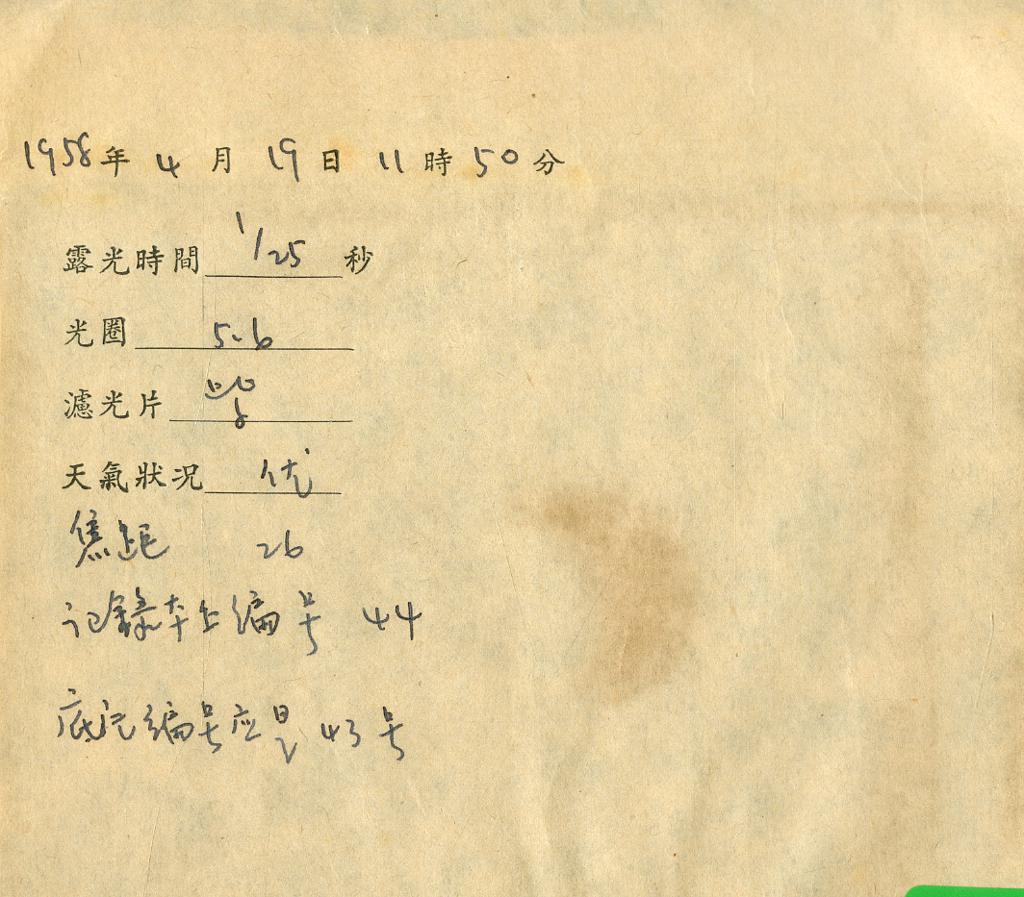 1958年 4 月 19 日 11 時 50 分
露光時間 1/25 秒
光圈 5.6
濾光片
天氣狀况 优
焦距 26
记錄本上编号 44
底 编号应是 43 号